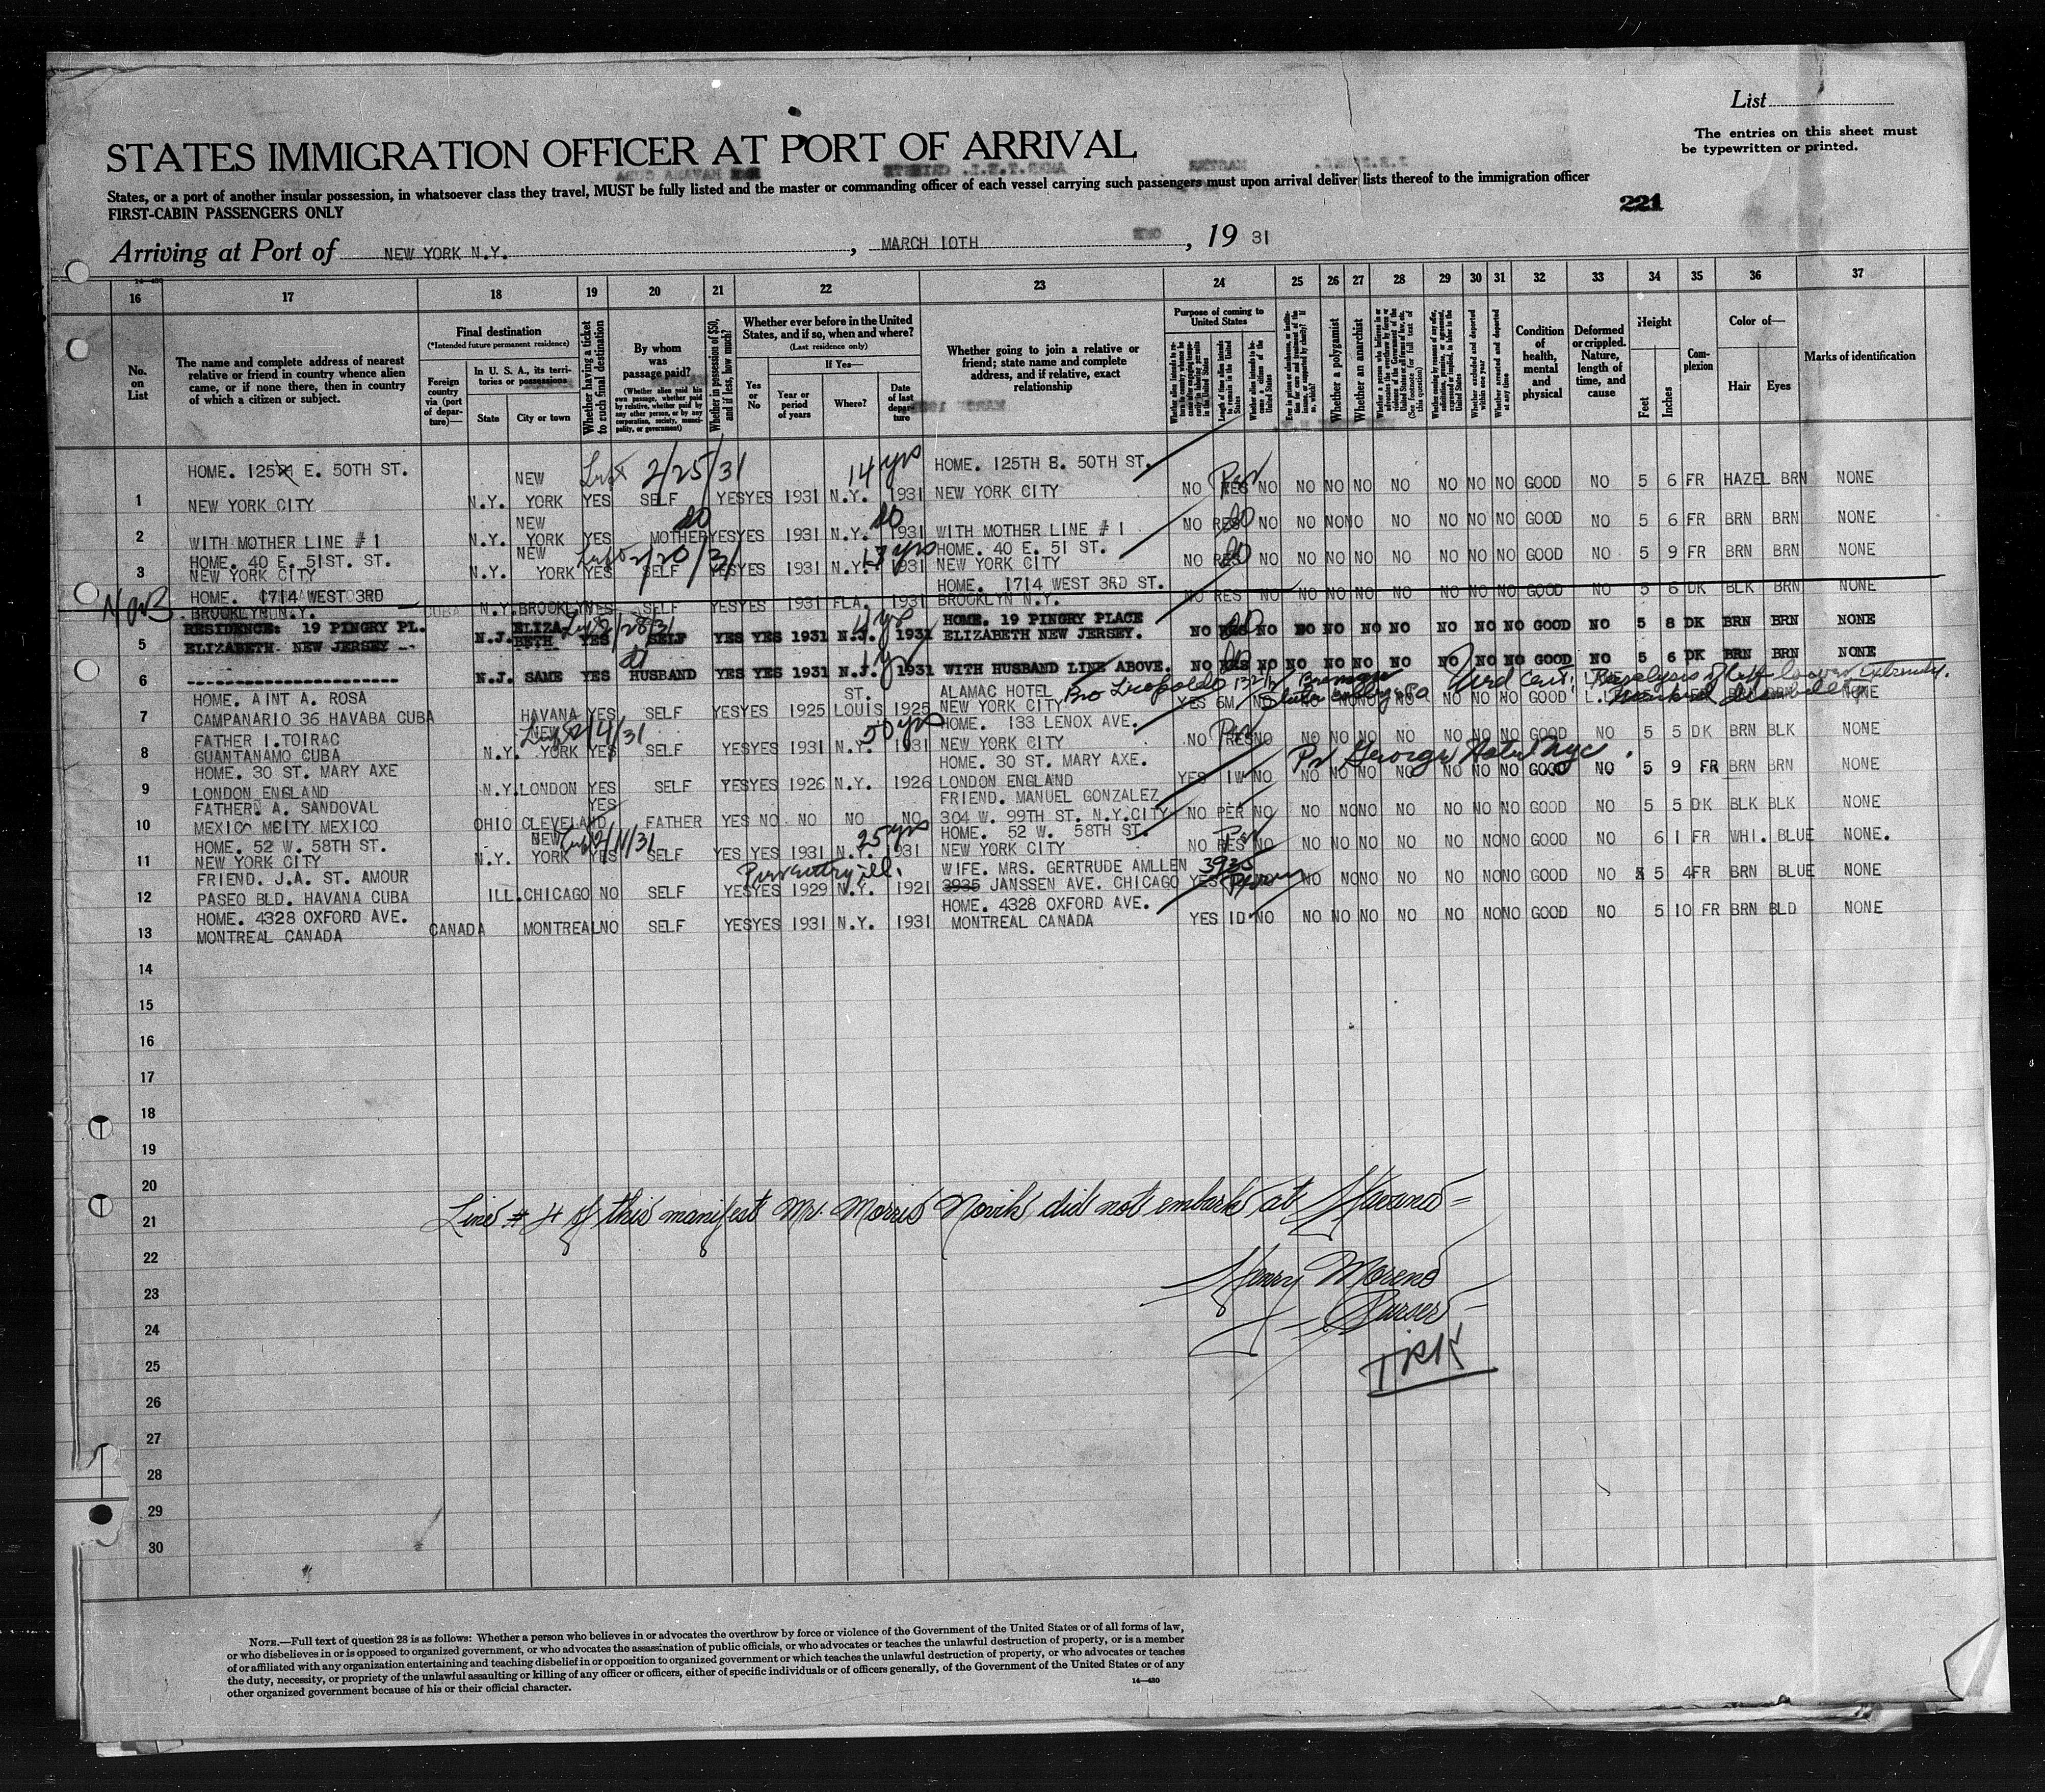 List
The entries on this sheet must
be typewritten or printed.
STATES IMMIGRATION OFFICER AT PORT OF ARRIVAL
States, or a port of another insular possession, in whatsoever class they travel, MUST be fully listed and the master or commanding officer of each vessel carrying such passengers must upon arrival deliver lists thereof to the immigration officer
FIRST-CABIN PASSENGERS ONLY
221
Arriving at Port of NEW YORK N.Y. , MARCH 10TH , 19 31
16 17 18 19 20 21 22 23 24 25 26 27 28 29 30 31 32 33 34 35 36 37
No. on List
The name and complete address of nearest relative or friend in country whence alien came, or if none there, then in country of which a citizen or subject.
Final destination
(*Intended future permanent residence)
Foreign country via (port of departure)—
In U. S. A., its territories or possessions
State
City or town
Whether having a ticket to such final destination
By whom was passage paid?
(Whether alien paid his own passage, whether paid by relative, whether paid by any other person, or by any corporation, society, municipality, or government)
Whether in possession of $50, and if less, how much?
Whether ever before in the United States, and if so, when and where?
(Last residence only)
Yes or No
If Yes—
Year or period of years
Where?
Date of last departure
Whether going to join a relative or friend; state name and complete address, and if relative, exact relationship
Purpose of coming to United States
Whether a polygamist
Whether an anarchist
Condition of health, mental and physical
Deformed or crippled. Nature, length of time, and cause
Height
Feet
Inches
Complexion
Color of—
Hair
Eyes
Marks of identification
HOME. 125 E. 50TH ST. NEW 2/25/31 14 yrs HOME. 125TH E. 50TH ST. Per
1 NEW YORK CITY N.Y. YORK YES SELF YES YES 1931 N.Y. 1931 NEW YORK CITY NO RES NO NO NO NO NO NO NO NO GOOD NO 5 6 FR HAZEL BRN NONE
NEW do do do
2 WITH MOTHER LINE # 1 N.Y. YORK YES MOTHER YES YES 1931 N.Y. 1931 WITH MOTHER LINE # 1 NO RES NO NO NO NO NO NO NO NO GOOD NO 5 6 FR BRN BRN NONE
HOME. 40 E. 51ST. ST. NEW 2/20/31 yrs HOME. 40 E. 51 ST. do
3 NEW YORK CITY N.Y. YORK YES SELF YES YES 1931 N.Y. 1931 NEW YORK CITY NO RES NO NO NO NO NO NO NO NO GOOD NO 5 9 FR BRN BRN NONE
HOME. 1714 WEST 3RD HOME. 1714 WEST 3RD ST.
BROOKLYN N.Y. CUBA N.Y. BROOKLYN YES SELF YES YES 1931 FLA. 1931 BROOKLYN N.Y. NO RES NO NO NO NO NO NO NO NO GOOD NO 5 6 DK BLK BRN NONE
RESIDENCE: 19 PINGRY PL. ELIZA 2/28/31 HOME. 19 PINGRY PLACE
5 ELIZABETH NEW JERSEY -- N.J. BETH YES SELF YES YES 1931 N.J. 1931 ELIZABETH NEW JERSEY. NO RES NO NO NO NO NO NO NO NO GOOD NO 5 8 DK BRN BRN NONE
6 --------------------- N.J. SAME YES HUSBAND YES YES 1931 N.J. 1931 WITH HUSBAND LINE ABOVE. NO RES NO NO NO NO NO NO NO NO GOOD NO 5 6 DK BRN BRN NONE
Med Cert: Paralysis of left lower extremity.
HOME. AINT A. ROSA ST. ALAMAC HOTEL Bro Leopoldo
7 CAMPANARIO 36 HAVABA CUBA HAVANA YES SELF YES YES 1925 LOUIS 1925 NEW YORK CITY YES 6M NO NO NO NO NO NO NO NO GOOD
FATHER I.TOIRAC NEW 2/4/31 50 yrs HOME. 133 LENOX AVE. Per
8 GUANTANAMO CUBA N.Y. YORK YES SELF YES YES 1931 N.Y. 1931 NEW YORK CITY NO RES NO NO NO NO NO NO NO NO GOOD NO 5 5 DK BRN BLK NONE
HOME. 30 ST. MARY AXE HOME. 30 ST. MARY AXE. George Hotel Nyc.
9 LONDON ENGLAND N.Y. LONDON YES SELF YES YES 1926 N.Y. 1926 LONDON ENGLAND YES 1W NO NO NO NO NO NO NO NO GOOD NO 5 9 FR BRN BRN NONE
FATHER. A. SANDOVAL YES FRIEND. MANUEL GONZALEZ
10 MEXICO MCITY MEXICO OHIO CLEVELAND FATHER YES NO NO NO NO 304 W. 99TH ST. N.Y.CITY NO PER NO NO NO NO NO NO NO NO GOOD NO 5 5 DK BLK BLK NONE
HOME. 52 W. 58TH ST. NEW 2/11/31 25 yrs HOME. 52 W. 58TH ST. Per
11 NEW YORK CITY N.Y. YORK YES SELF YES YES 1931 N.Y. 1931 NEW YORK CITY NO RES NO NO NO NO NO NO NO NO GOOD NO 6 1 FR WHI. BLUE NONE.
FRIEND. J.A. ST. AMOUR WIFE. MRS. GERTRUDE AMLLEN 3935
12 PASEO BLD. HAVANA CUBA ILL. CHICAGO NO SELF YES YES 1929 N.Y. 1921 3935 JANSSEN AVE. CHICAGO YES NO NO NO NO NO NO NO GOOD NO 5 4 FR BRN BLUE NONE
HOME. 4328 OXFORD AVE. HOME. 4328 OXFORD AVE.
13 MONTREAL CANADA CANADA MONTREAL NO SELF YES YES 1931 N.Y. 1931 MONTREAL CANADA YES 1D NO NO NO NO NO NO NO NO GOOD NO 5 10 FR BRN BLD NONE
14
15
16
17
18
19
20
21
Line # 4 of this manifest Mr. Morris Novik did not embark at Havana =
22
Henry Moreno
23
Purser
24
25
26
27
28
29
30
NOTE.—Full text of question 28 is as follows: Whether a person who believes in or advocates the overthrow by force or violence of the Government of the United States or of all forms of law,
or who disbelieves in or is opposed to organized government, or who advocates the assassination of public officials, or who advocates or teaches the unlawful destruction of property, or is a member
of or affiliated with any organization entertaining and teaching disbelief in or opposition to organized government or which teaches the unlawful destruction of property, or who advocates or teaches
the duty, necessity, or propriety of the unlawful assaulting or killing of any officer or officers, either of specific individuals or of officers generally, of the Government of the United States or of any
other organized government because of his or their official character.
14—480